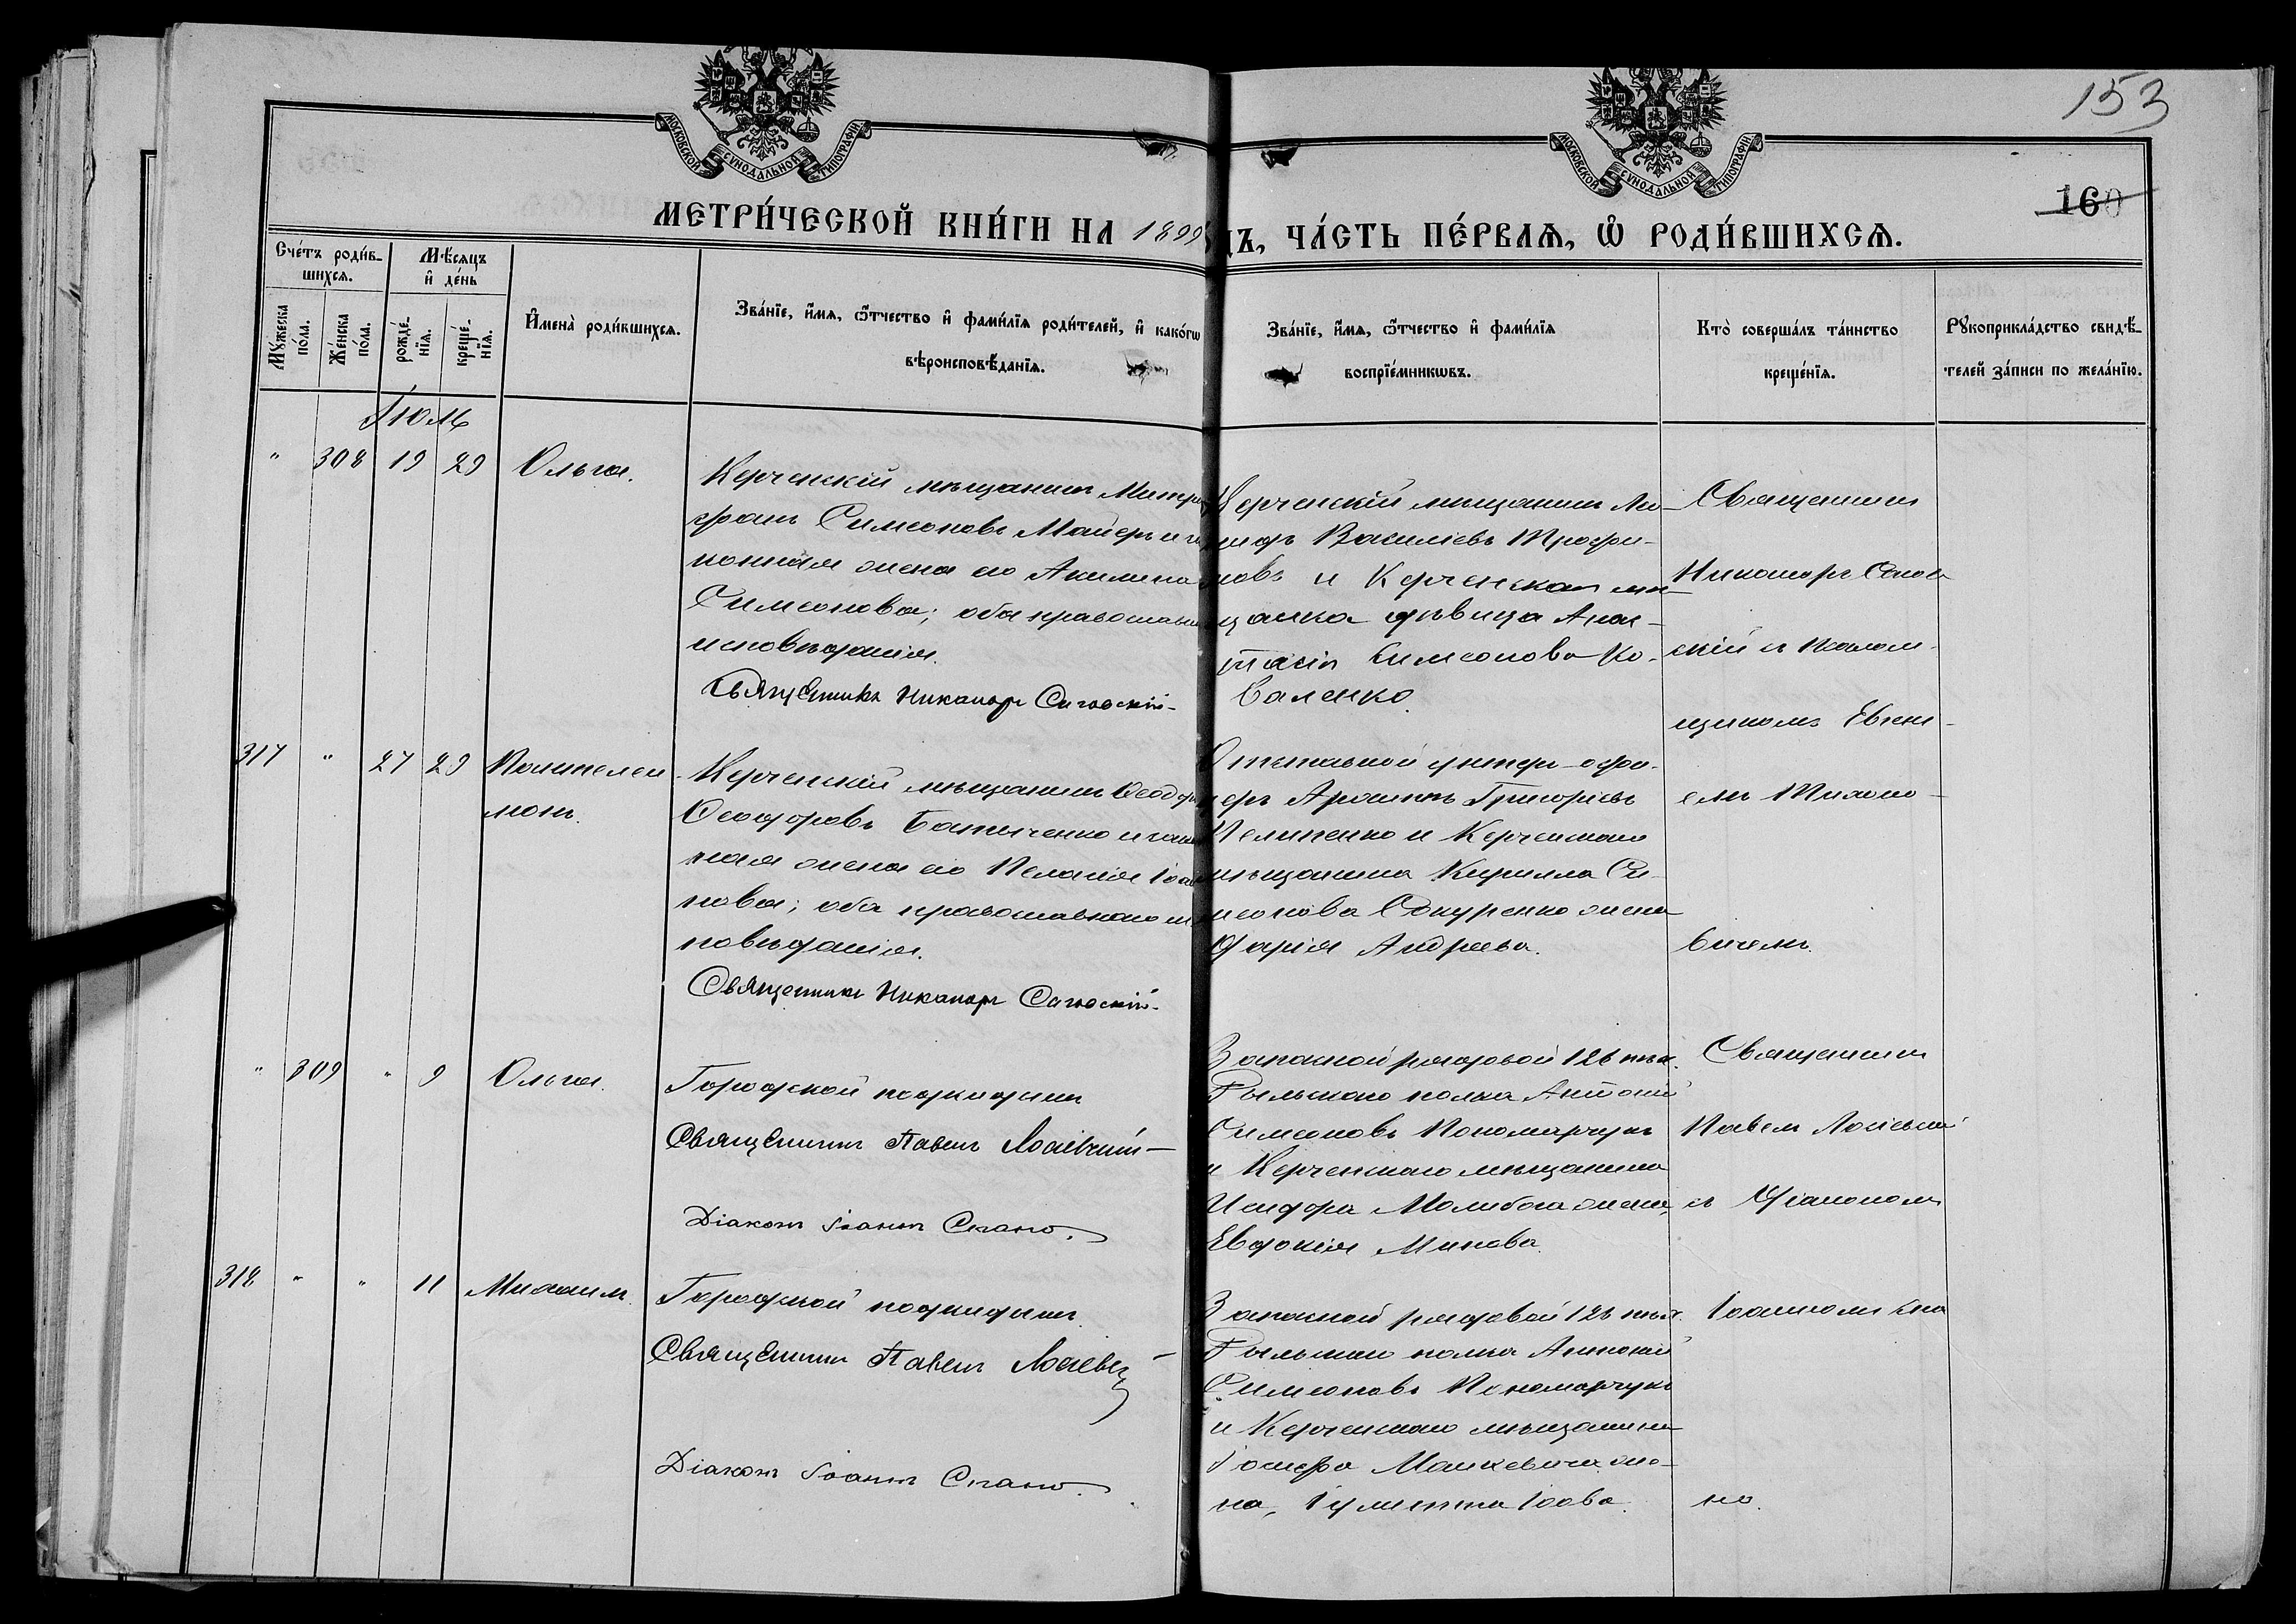 153
160
МОСКОВСКОЙ СѴНОДАЛЬНОЙ ТИПОГРАФІИ.
МОСКОВСКОЙ СѴНОДАЛЬНОЙ ТИПОГРАФІИ.
МЕТРИ́ЧЕСКОЙ КНИ́ГИ НА 1899
ДЪ, ЧА́СТЬ ПЕ́РВАѦ, Ѡ҆ РОДИ́ВШИХСѦ.
Сче́тъ роди́в-
шихсѧ.
Мѣ́сяцъ
и҆ де́нь
Мꙋ́жеска
по́ла.
Же́нска
по́ла.
рожде́-
нїѧ.
креще́-
нїѧ.
И҆мена̀ роди́вшихсѧ.
Зва́нїе, и҆́мѧ, ѻ҆́тчество и҆ фами́лїѧ роди́телей, и҆ како́гѡ
вѣроисповѣ́данїѧ.
Зва́нїе, и҆́мѧ, ѻ҆́тчество и҆ фами́лїѧ
воспрїе́мникѡвъ.
Кто̀ соверша́лъ та́инство
креще́нїѧ.
Рꙋкоприкла́дство свидѣ́-
телей за́писи по жела́нїю.
Іюль
" 308 19 29 Ольга.
Керченскій мѣщанинъ Митро
фанъ Симеоновъ Майеръ и за
конная жена его Акилина
Симеонова; оба православн
исповѣданія.
Священникъ Никаноръ
Керченскій мѣщанинъ Ни
Василіевъ Трофи-
мовъ и Керченская мѣ-
щанка дѣвица Анас-
тасія Симеонова Ко-
валенко.
Священникъ
Никаноръ
скій съ Псалом-
щикомъ Евгені-
емъ Тихоно-
вичемъ.
317 " 27 29 Пантелеи-
монъ.
Керченскій мѣщанинъ Ѳеодоръ
Ѳеодоровъ и закон
ная жена его Пелагія Іоан
нова; оба православнаго ис
повѣданія.
Священникъ Никаноръ
Отставной унтеръ-офи-
церъ Григорьевъ
и Керченскаго
мѣщанина Кирилла Си-
меонова Сокуренко жена
Дарія Андреева.
" 309 " 9 Ольга.
Городской подкидышъ
Священникъ Павелъ Лосіевскій
Діаконъ Іоаннъ Спано.
Запасной рядовой 126 пѣх.
Рыльскаго полка Антоній
Симеоновъ Пономарчукъ
и Керченскаго мѣщанина
Исидора Молибога жена,
Евдокія Минова.
Священникъ
Павелъ Лосіевскій
съ Діакономъ
Іоанномъ Спа
но.
318 " " 11 Михаилъ.
Городской подкидышъ.
Священникъ Павелъ Лосіевскій
Діаконъ Іоаннъ Спано.
Запасной рядовой 126 пѣх.
Рыльскаго полка Антоній
Симеоновъ Пономарчукъ
и Керченскаго мѣщанина
Іосифа Мацкевича же-
на, Іулитта Іовова.